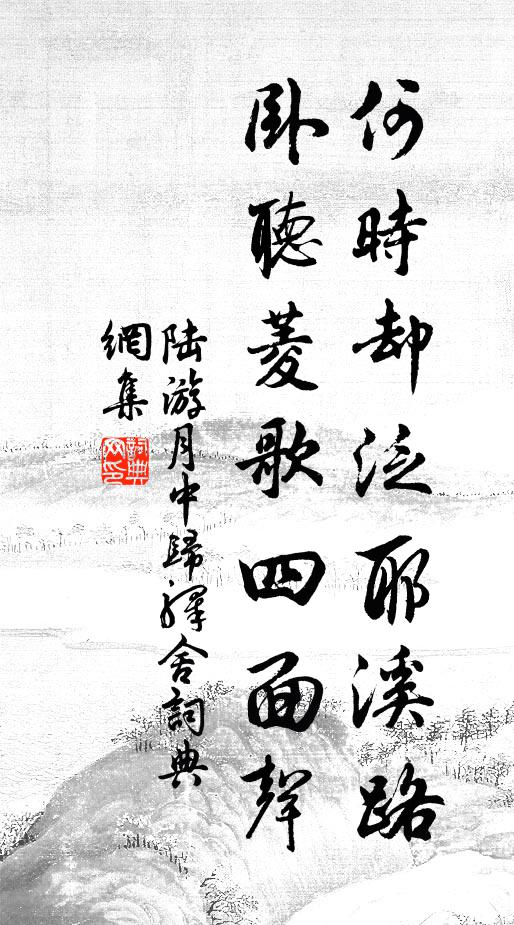 何時却泛耶溪路
卧聽菱歌四面聲
陆游月中歸驛舍詞典
網集
詞典
网印